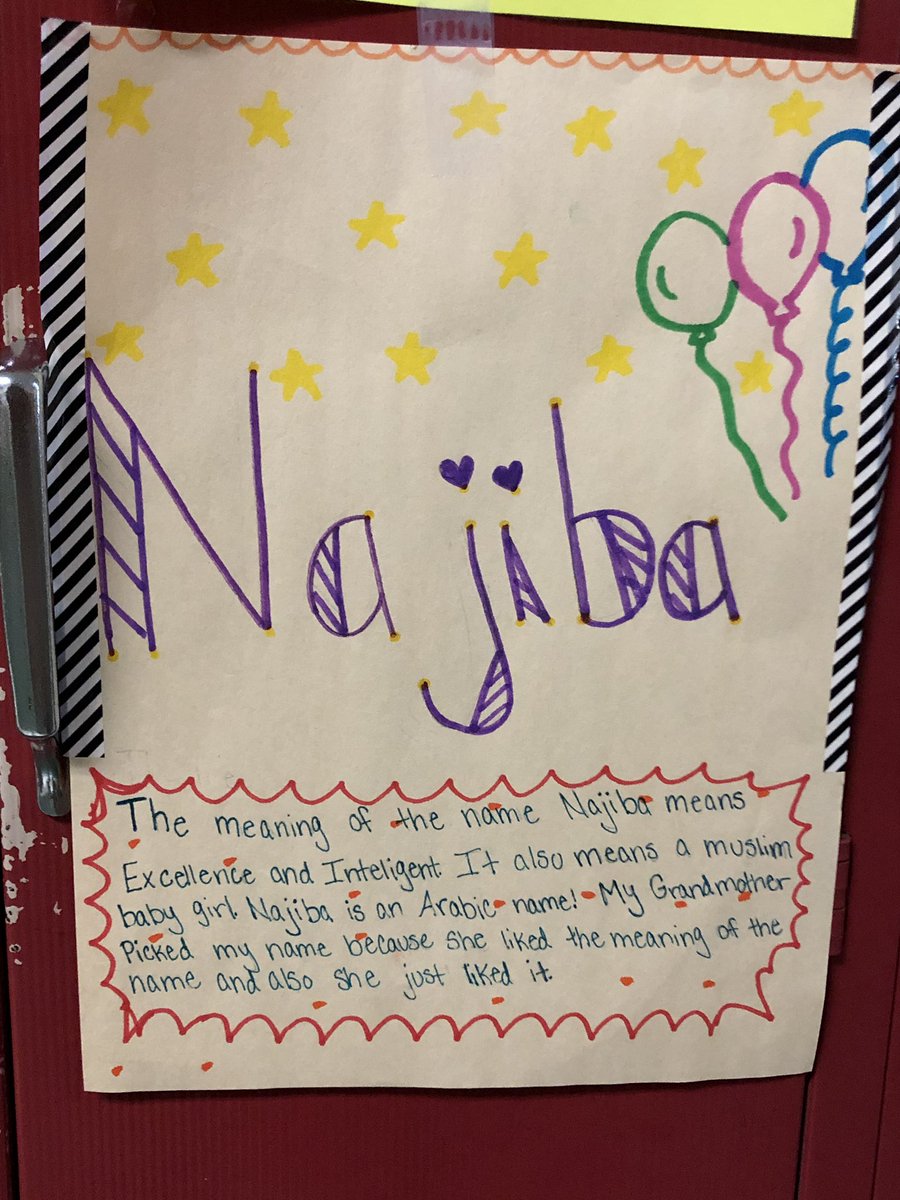 Najiba
The meaning of the name Najiba means
Excellence and Inteligent. It also means a muslim
baby girl. Najiba is an Arabic name! My Grandmother
Picked my name because she liked the meaning of the
name and also she just liked it.